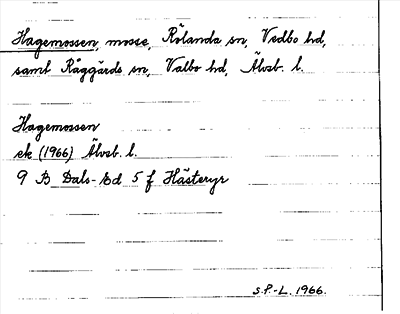 Hagemossen, mosse, Rölanda sn, Vedbo hd,
samt Råggärds sn, Valbo hd, Älvsb. l.
Hagemossen
ek (1966) Älvsb. l.
9 B Dals-Ed 5 f Hästeryr
S.P.-L. 1966.